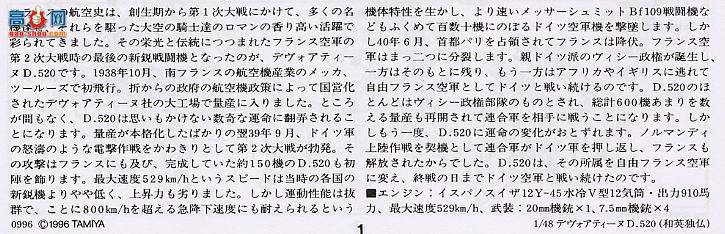 航空史は、創生期から第1次大戦にかけて、多くの名
れらを駆った大空の騎士達のロマンの香り高い活躍で
彩られてきました。その栄光と伝統につつまれたフランス空軍の
第2次大戦時の最後の新鋭戦闘機となったのが、デヴォアティー
ヌD.520です。1938年10月、南フランスの航空機産業のメッカ、
ツールーズで初飛行。折からの政府の航空機政策によって国営化
されたデヴォアティーヌ社の大工場で量産に入りました。ところ
が間もなく、D.520は思いもかけない数奇な運命に翻弄されるこ
とになります。量産が本格化したばかりの翌39年9月、ドイツ軍
の怒濤のような電撃作戦をかわきりとして第2次大戦が勃発。そ
の攻撃はフランスにも及び、完成していた約150機のD.520も初
陣を飾ります。最大速度529km/hというスピードは当時の各国の
新鋭機よりやや低く、上昇力も劣りました。しかし運動性能は抜
群で、ことに800km/hを超える急降下速度にも耐えられるという
機体特性を生かし、より速いメッサーシュミットBf109戦闘機な
どもふくめて百数十機にのぼるドイツ空軍機を撃墜します。しか
し40年6月、首都パリを占領されてフランスは降伏。フランス空
軍はまっ二つに分裂します。親ドイツ派のヴィシー政権が誕生し、
一方はそのもとに残り、もう一方はアフリカやイギリスに逃れて
自由フランス空軍としてドイツと戦い続けるのです。D.520のほ
とんどはヴィシー政権部隊のものとされ、総計600機あまりを数
える量産も再開されて連合軍を相手に戦うことになります。しか
しもう一度、D.520に運命の変化がおとずれます。ノルマンディ
上陸作戦を契機として連合軍がドイツ軍を押し返し、フランスも
解放されたからでした。D.520は、その所属を自由フランス空軍
に変え、終戦の日までドイツ空軍と戦い続けたのです。
■エンジン:イスパノスイザ12Y-45水冷V型12気筒・出力910馬
力、最大速度529km/h、武装:20mm機銃×1、7.5mm機銃×4
0996 ©1996 TAMIYA
1
1/48 デヴォアティーヌD.520(和英独仏)